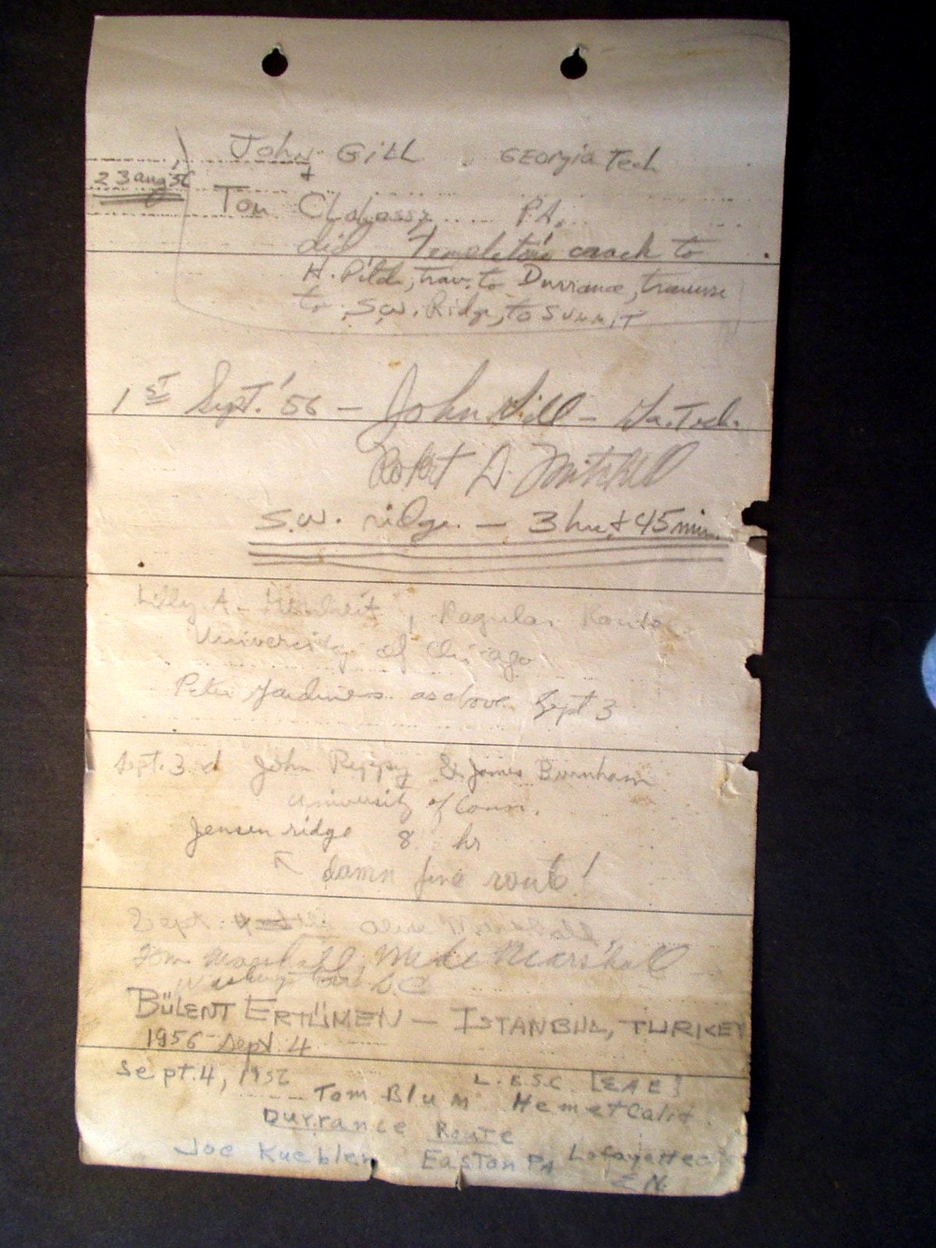 John Gill Georgia Tech
23 aug 56 &
Tom PA,
did Templeton's crack to
H. Pitch, trav. to Durrance, traverse
to S.W. Ridge, to SUMMIT
1ST Sept. '56 – John Gill – Ga. Tech.
Robert D. Mitchell
S.W. ridge – 3 hrs & 45 min.
A. Regular
University of Chicago
Peter Gardiner as above Sept 3
Sept. 3rd John Reppy & James Burnham
University of Conn.
Jensen ridge 8 hr
damn fine route!
Sept. 4
Tom Marshall, Mike Marshall
Washington D.C
BÜLENT ERTÜMEN – ISTANBUL, TURKEY
1956 Sept. 4
Sept. 4, 1956 L.E.S.C. [EAE]
Tom Blum Hemet Calif.
Durrance Route
Joe Kuebler Easton PA Lafayette